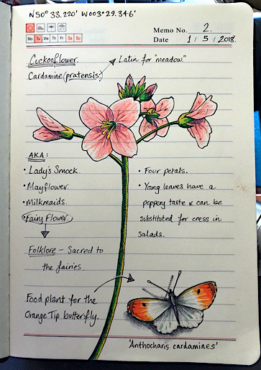 N50° 33.220' W003° 29.346'
Memo No. 2
Date 1 / 5 / 2018
Cuckooflower
Latin for "meadow"
Cardamine (pratensis)
AKA:
• Lady's Smock.
• Mayflower.
• Milkmaids.
• Fairy Flower
Folklore - Sacred to
the fairies.
• Four petals.
• Yong leaves have a
peppery taste & can be
substituted for cress in
salads.
Food plant for the
Orange Tip butterfly.
'Anthocharis cardamines'